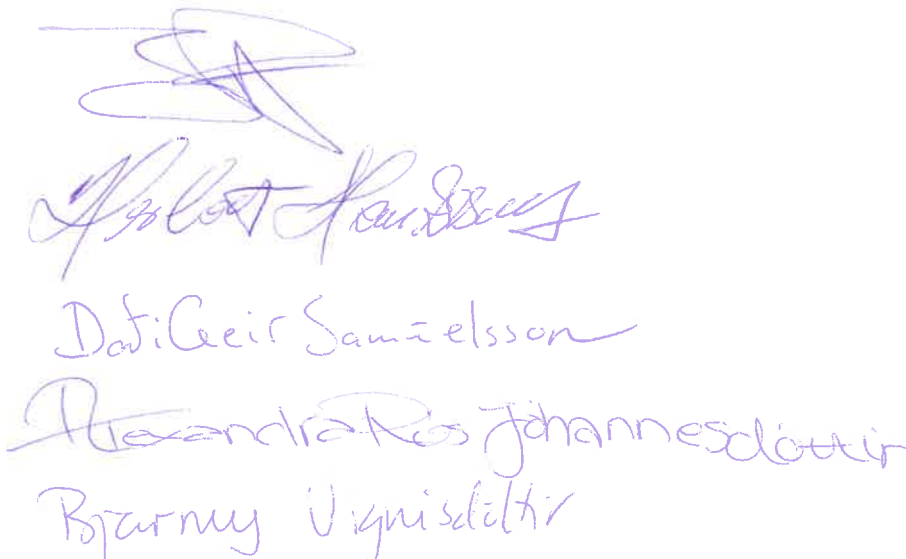 Herbert Hauksson
Daði Geir Samúelsson
Alexandra Rós Jóhannesdóttir
Bjarney Vignisdóttir